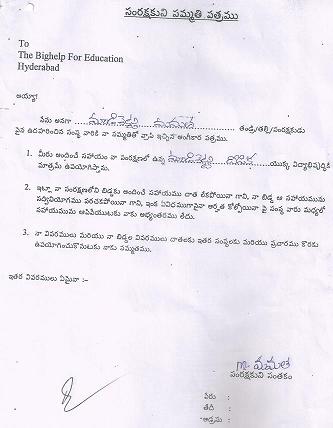 సంరక్షకుని సమ్మతి పత్రము
To
The Bighelp For Education
Hyderabad
అయ్యా!
నేను అనగా ........ మమత ........ తండ్రి/తల్లి/సంరక్షకుడు
పైన ఉదహరించిన సంస్థ వారికి నా సమ్మతితో వ్రాసి ఇచ్చిన అంగీకార పత్రము.
1. మీరు అందించే సహాయం నా సంరక్షణలో ఉన్న ........ యొక్క విద్యాభివృద్ధికి
మాత్రమే ఉపయోగిస్తాను.
2. ఇట్లా నా సంరక్షణలోని బిడ్డకు అందించే సహాయము దాత లేకపోయినా గాని, నా బిడ్డ ఆ సహాయమును
సద్వినియోగము పరచకపోయినా గాని, ఇంక ఏవిధముగానైనా అర్హత కోల్పోయినా పై సంస్థ వారు మధ్యలో
సహాయమును ఆపివేయుటకు నాకు అభ్యంతరము లేదు.
3. నా వివరములు మరియు నా బిడ్డ వివరములు దాతలకు ఇతర సంస్థలకు మరియు ప్రచారము కొరకు
ఉపయోగించుకొనుటకు నాకు సమ్మతము.
ఇతర వివరములు ఏమైనా :-
m. మమత
సంరక్షకుని సంతకం
పేరు :
తేదీ :
అడ్రసు :